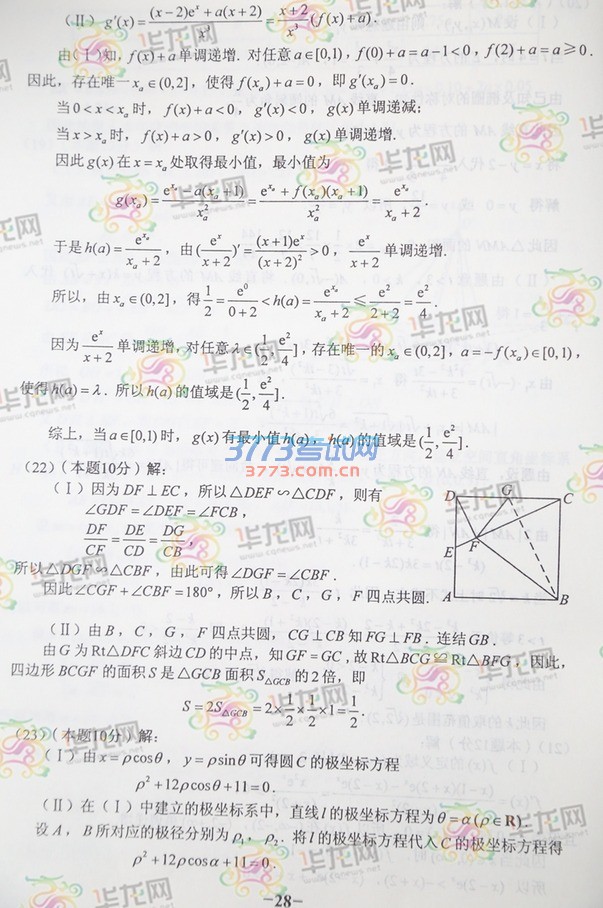 (Ⅱ) g′(x)=((x−2)eˣ+a(x+2))/x³=(x+2)/x³(f(x)+a).
由(Ⅰ)知, f(x)+a单调递增. 对任意a∈[0,1), f(0)+a=a−1<0, f(2)+a=a≥0.
因此, 存在唯一xₐ∈(0,2], 使得f(xₐ)+a=0, 即g′(xₐ)=0.
当0<x<xₐ时, f(x)+a<0, g′(x)<0, g(x)单调递减;
当x>xₐ时, f(x)+a>0, g′(x)>0, g(x)单调递增.
因此g(x)在x=xₐ处取得最小值, 最小值为
g(xₐ)=(e^{xₐ}−a(xₐ+1))/xₐ²=(e^{xₐ}+f(xₐ)(xₐ+1))/xₐ²=e^{xₐ}/(xₐ+2).
于是h(a)=e^{xₐ}/(xₐ+2), 由(eˣ/(x+2))′=(x+1)eˣ/(x+2)²>0, eˣ/(x+2)单调递增.
所以, 由xₐ∈(0,2], 得1/2=e⁰/(0+2)<h(a)=e^{xₐ}/(xₐ+2)≤e²/(2+2)=e²/4.
因为eˣ/(x+2)单调递增, 对任意λ∈(1/2, e²/4], 存在唯一的xₐ∈(0,2], a=−f(xₐ)∈[0,1),
使得h(a)=λ. 所以h(a)的值域是(1/2, e²/4].
综上, 当a∈[0,1)时, g(x)有最小值h(a), h(a)的值域是(1/2, e²/4].
3773考试网
3773.com.cn
(22) (本题10分) 解:
(Ⅰ) 因为DF⊥EC, 所以△DEF∽△CDF, 则有
∠GDF=∠DEF=∠FCB,
DF/CF=DE/CD=DG/CB,
所以△DGF∽△CBF, 由此可得∠DGF=∠CBF.
因此∠CGF+∠CBF=180°, 所以B, C, G, F四点共圆.
D G C
E F
A B
(Ⅱ) 由B, C, G, F四点共圆, CG⊥CB知FG⊥FB. 连结GB.
由G为Rt△DFC斜边CD的中点, 知GF=GC, 故Rt△BCG≌Rt△BFG, 因此,
四边形BCGF的面积S是△GCB面积S△GCB的2倍, 即
S=2S△GCB=2×1/2×1/2×1=1/2.
(23) (本题10分) 解:
(Ⅰ) 由x=ρcosθ, y=ρsinθ可得圆C的极坐标方程
ρ²+12ρcosθ+11=0.
(Ⅱ) 在(Ⅰ)中建立的极坐标系中, 直线l的极坐标方程为θ=α(ρ∈R).
设A, B所对应的极径分别为ρ₁, ρ₂. 将l的极坐标方程代入C的极坐标方程得
ρ²+12ρcosα+11=0.
-28-
华龙网
www.cqnews.net